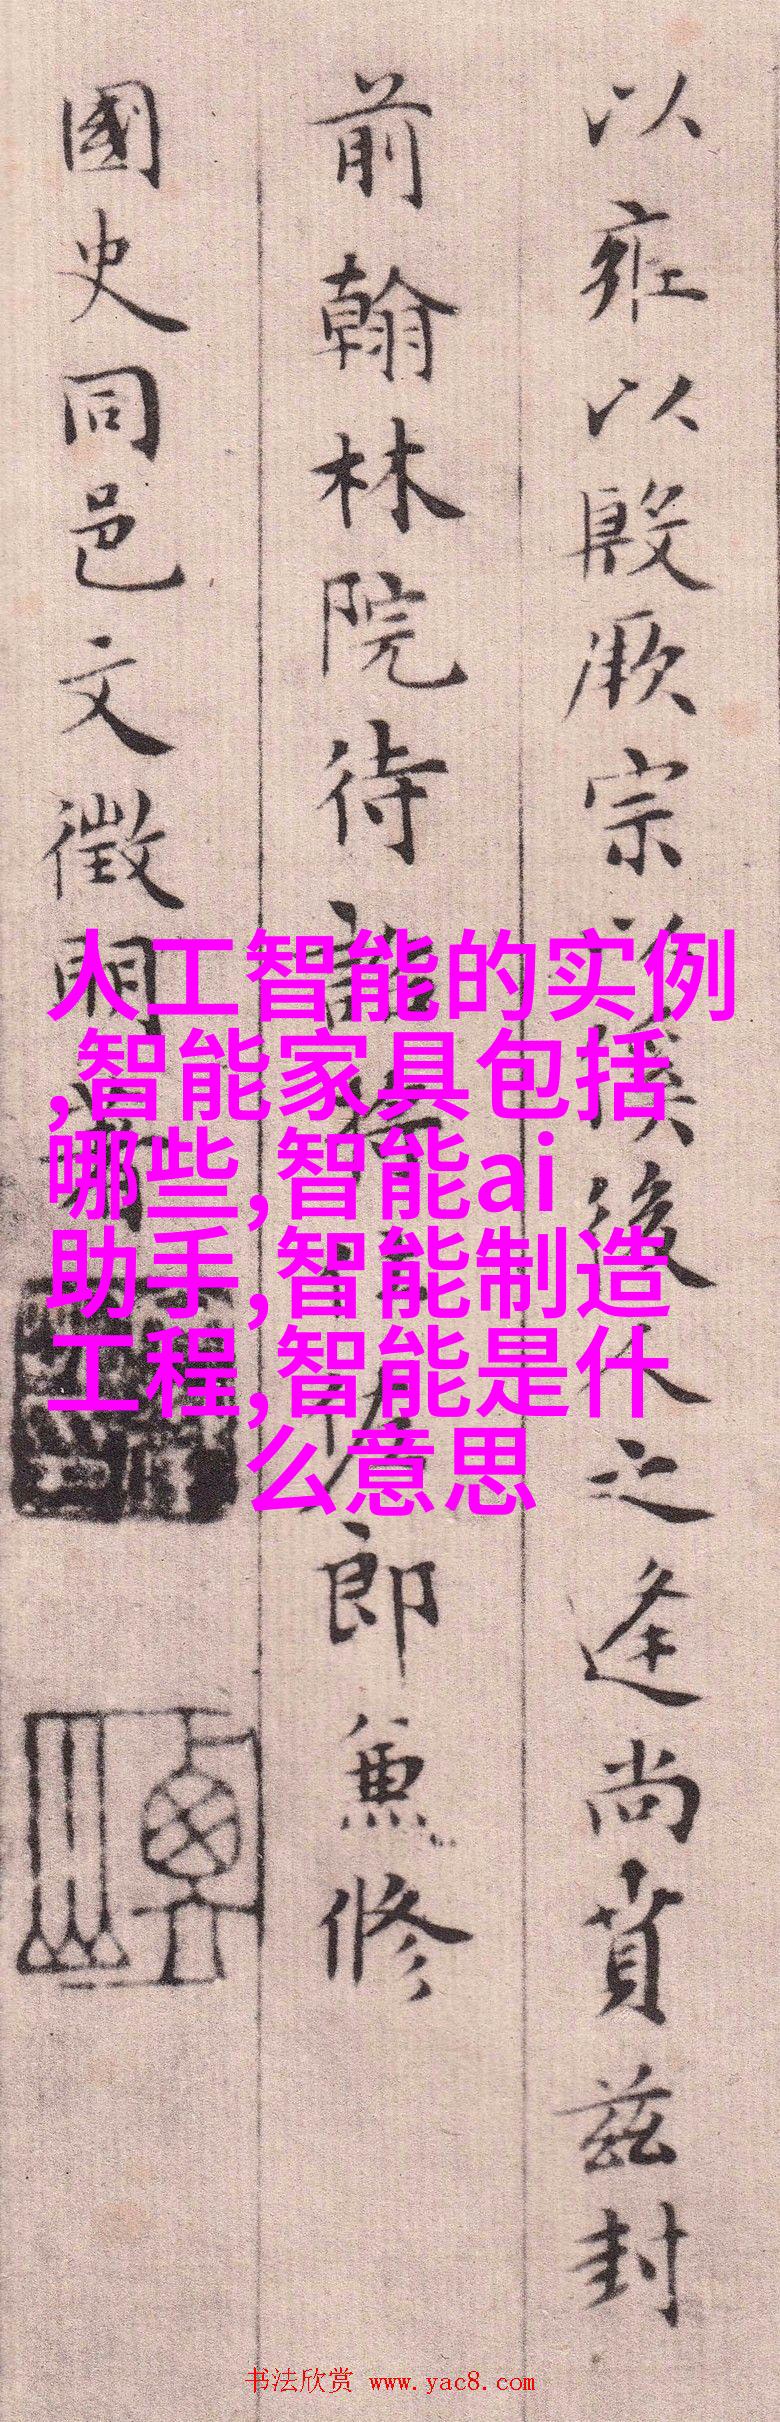 以雍以殷厥宗以俟後人之逢尚賁茲封
前翰林院待詔將仕佐郎兼修
國史同邑文徵明書
人工智能的实例
,智能家具包括
哪些,智能ai
助手,智能制造
工程,智能是什
么意思
书法欣赏 www.yac8.com